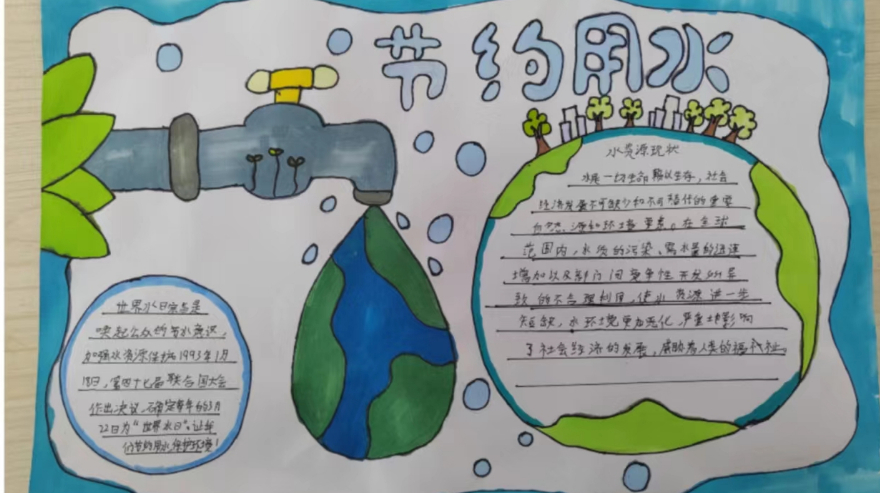 节约用水
水资源现状
水是一切生命赖以生存，社会
经济发展不可缺少和不可替代的重要
自然资源和环境要素。在全球
范围内，水质的污染、需水量的迅速
增加以及部门间竞争性开发所导
致的不合理利用，使水资源进一步
短缺，水环境更加恶化，严重地影响
了社会经济的发展，威胁着人类的福祉。
世界水日宗旨是
唤起公众的节水意识，
加强水资源保护。1993年1月
18日，第四十七届联合国大会
作出决议，确定每年的3月
22日为“世界水日”。让我
们节约用水保护环境！